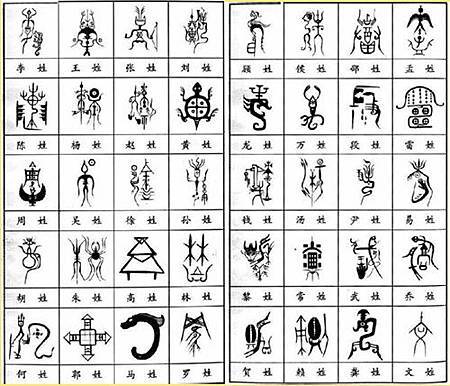 李 姓 王 姓 张 姓 刘 姓
陈 姓 杨 姓 赵 姓 黄 姓
周 姓 吴 姓 徐 姓 孙 姓
胡 姓 朱 姓 高 姓 林 姓
何 姓 郭 姓 马 姓 罗 姓
顾 姓 侯 姓 邵 姓 孟 姓
龙 姓 万 姓 段 姓 雷 姓
钱 姓 汤 姓 尹 姓 易 姓
黎 姓 常 姓 武 姓 乔 姓
贺 姓 赖 姓 龚 姓 文 姓